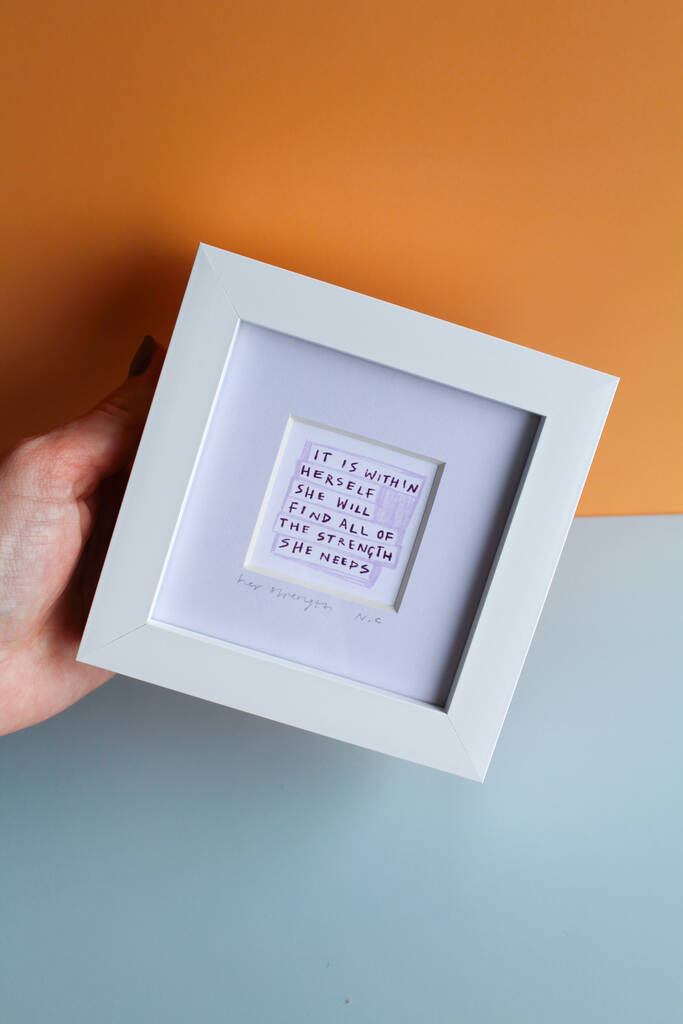 IT IS WITHIN
HERSELF
SHE WILL
FIND ALL OF
THE STRENGTH
SHE NEEDS
her strength N.C